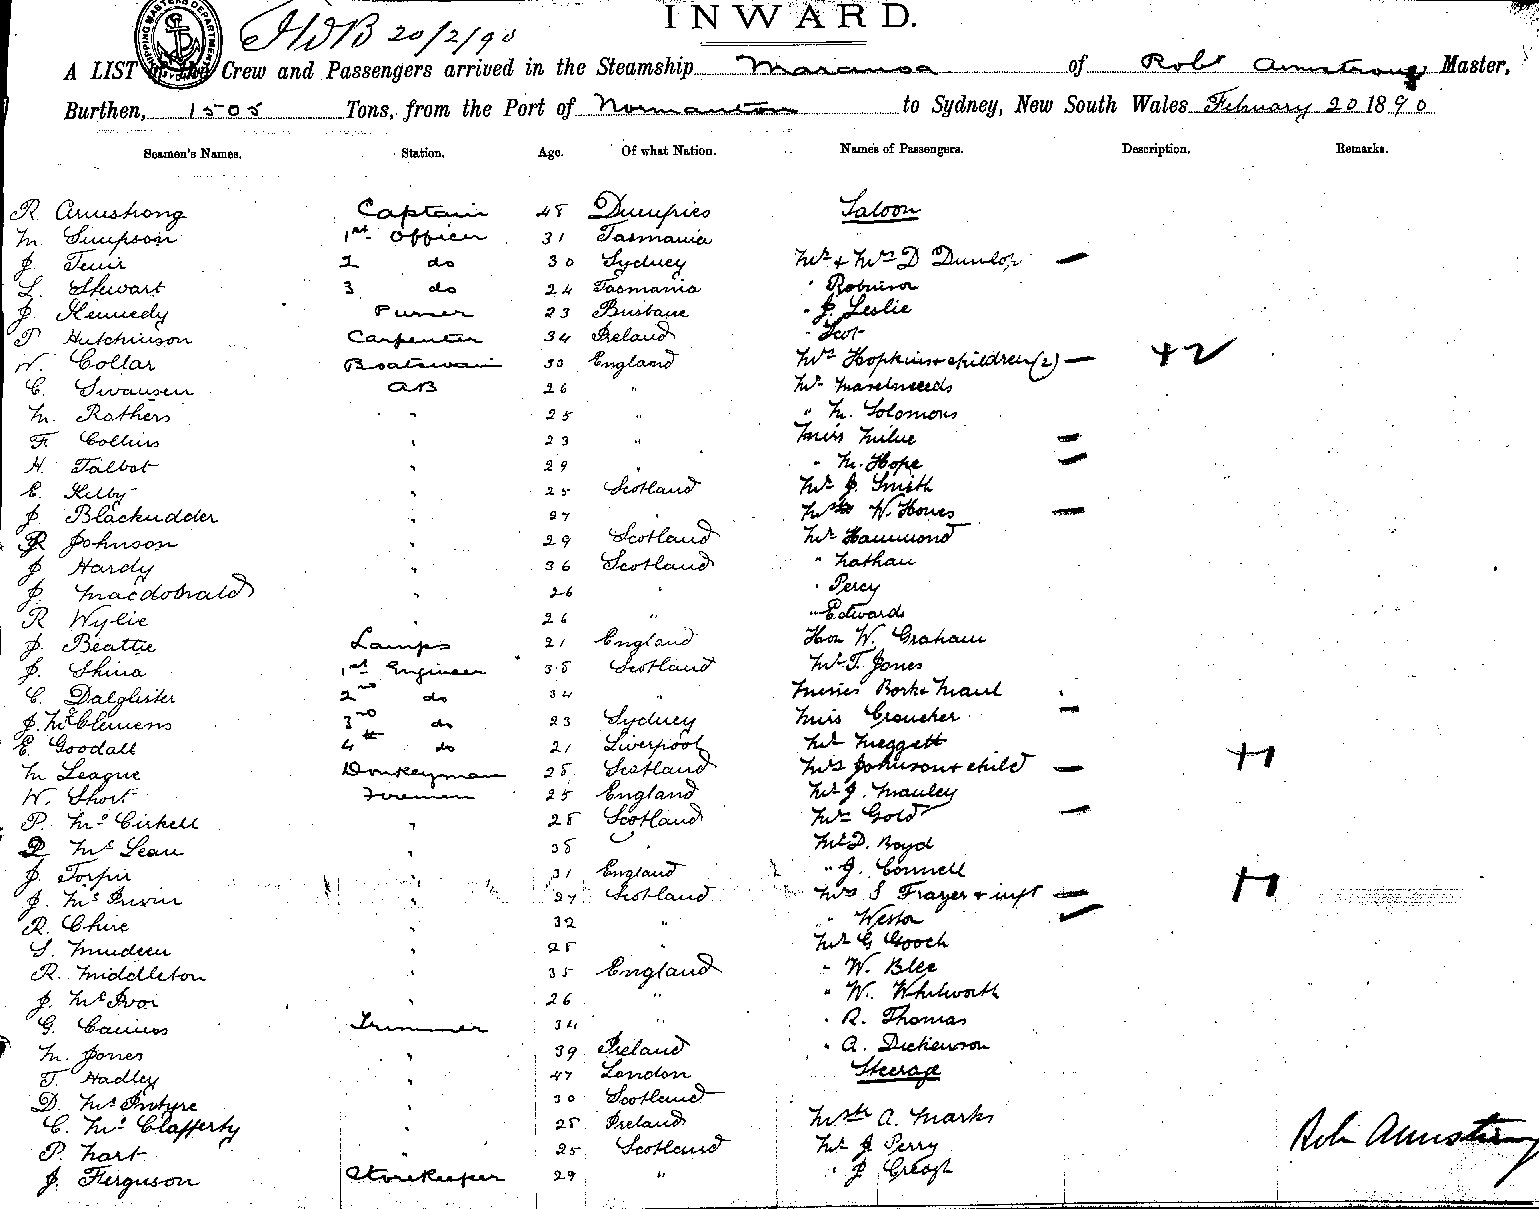 INWARD.
20/2/90
A LIST of the Crew and Passengers arrived in the Steamship Maranoa of Robt Armstrong Master,
Burthen, 1505 Tons, from the Port of Normanton to Sydney, New South Wales February 20 1890
Seamen's Names. Station. Age. Of what Nation. Names of Passengers. Description. Remarks.
R Armstrong Captain 48 Dumfries Saloon
M Simpson 1st Officer 31 Tasmania
J 2 do 30 Sydney Mr & Mrs D Dunlop —
L Stewart 3 do 24 Tasmania " Robinson
J Kennedy Purser 23 Brisbane " J Leslie
T Hutchinson Carpenter 34 Ireland " Scot
W. Collar Boatswain 33 England Mrs Hopkins & children (2) — +2
C. Swansen AB 26 " Mr
M. Rathers " 25 " " M. Solomons
F Collins " 23 " Miss Milne —
H. Talbot " 29 " M. Hope —
E. Kilby " 25 Scotland Mr J. Smith
J Blackudder " 27 " W. Hones —
R Johnson " 29 Scotland Mr Hammond
J Hardy " 36 Scotland " Nathan
J. Macdonald " 26 " " Percy
R Wylie " 26 " " Edwards
J. Beattie Lamps 21 England Hon W. Graham
J. Shina 1st Engineer 38 Scotland Mr T. Jones
C. Dalglister 2nd do 34 " Misses
J. McClemens 3rd do 23 Sydney Miss Croucher —
E. Goodall 4th do 21 Liverpool Mr Meggett
M League Donkeyman 28 Scotland Mrs Johnson & child — +1
W. Short Firemen 25 England Mr J. Manley
P. Mc Cirkell " 28 Scotland Mrs Gold —
D Mc Lean " 38 " Mr D. Boyd
J. Torpir " 31 England " J. Connell
J. Mc Irwin " 27 Scotland Mrs S Frazer & inft — +1
R. Chire " 32 " " Weston
S. " 28 " Mr G Gooch
R. Middleton " 35 England " W. Blee
J. McIvor " 26 " " W. Whitworth
G. Trimmer 34 " " R. Thomas
M. Jones " 39 Ireland " A. Dickenson
T. Hadley " 47 London Steerage
D. McIntyre " 30 Scotland
C. Mc Clafferty " 28 Ireland A. Marks
P. Hart " 25 Scotland Mr J Perry
J. Ferguson Storekeeper 29 " " J Creagh
Robt Armstrong